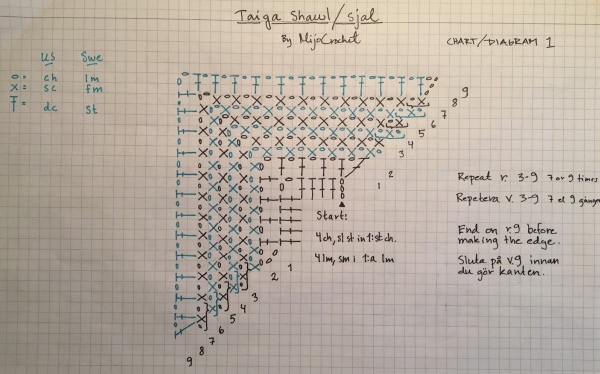 Taiga Shawl/sjal
By MijoCrochet
CHART/DIAGRAM 1
US Swe
o = ch lm
x = sc fm
Ŧ = dc st
9
8
7
6
5
4
3
2
1
Repeat r. 3-9 7 or 9 times
Repetera v. 3-9 7 el 9 gånger
Start:
4 ch, sl st in 1:st ch.
4 lm, sm i 1:a lm
End on r.9 before
making the edge.
Sluta på v.9 innan
du gör kanten.
1
2
3
4
5
6
7
8
9